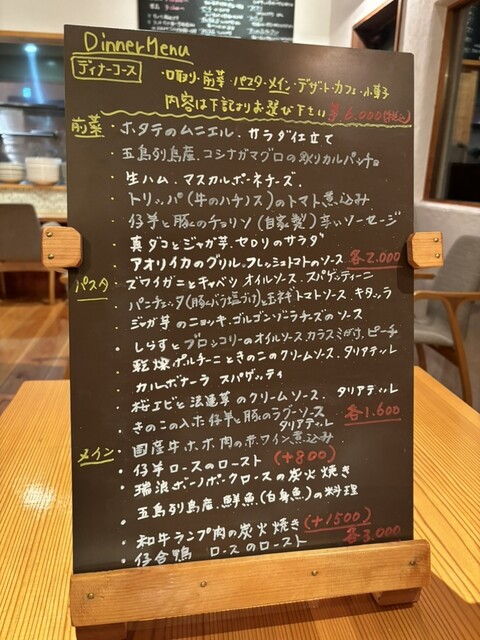 Dinner Menu
ディナーコース ・口取り・前菜・パスタ・メイン・デザート・カフェ・小菓子
内容は下記よりお選び下さい ¥6.000(税込)
前菜 ・ホタテのムニエル、サラダ仕立て
・五島列島産、コシナガマグロの炙りカルパッチョ
・生ハム、マスカルポーネチーズ、
・トリッパ(牛のハチノス)のトマト煮込み
・仔羊と豚のチョリソ(自家製)辛いソーセージ
・真ダコとジャガ芋、セロリのサラダ
・アオリイカのグリル、フレッシュトマトのソース 各2.000
パスタ ・ズワイガニとキャベツ オイルソース、スパゲッティーニ
・パンチェッタ(豚バラ塩づけ)と玉ネギ トマトソース、キタッラ
・ジャガ芋のニョッキ、ゴルゴンゾーラチーズのソース
・しらすとブロッコリーのオイルソース、カラスミがけ、ピーチ
・乾燥ポルチーニときのこのクリームソース、タリアテッレ
・カルボナーラ スパゲッティ
・桜エビと法蓮草のクリームソース、タリアテッレ
・きのこの入った仔羊と豚のラグーソース タリアテッレ 各1.600
メイン ・国産牛ホホ肉の赤ワイン煮込み
・仔羊ロースのロースト (+800)
・瑞浪ボーノポークロースの炭火焼き
・五島列島産、鮮魚(白身魚)の料理
・和牛ランプ肉の炭火焼き(+1500)
・仔合鴨 ロースのロースト 各3.000